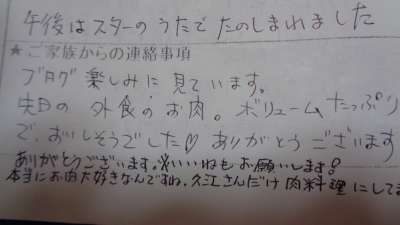 午後はスターのうたでたのしまれました
★ご家族からの連絡事項
ブログ楽しみに見ています。
先日の外食のお肉。ボリュームたっぷり
で、おいしそうでした♡ありがとうございます
ありがとうございます。※いいねもお願いします!
本当にお肉大好きなんですね。久江さんだけ肉料理にしてま